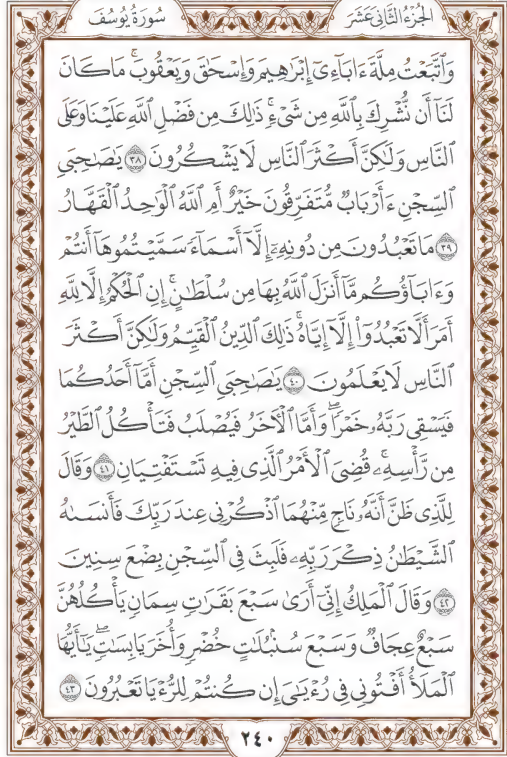 الجُزْءُ الثَّانِي عَشَرَ
سُورَةُ يُوسُفَ
وَٱتَّبَعْتُ مِلَّةَ ءَابَآءِىٓ إِبْرَٰهِيمَ وَإِسْحَٰقَ وَيَعْقُوبَۚ مَا كَانَ
لَنَآ أَن نُّشْرِكَ بِٱللَّهِ مِن شَىْءٍۚ ذَٰلِكَ مِن فَضْلِ ٱللَّهِ عَلَيْنَا وَعَلَى
ٱلنَّاسِ وَلَٰكِنَّ أَكْثَرَ ٱلنَّاسِ لَا يَشْكُرُونَ ٣٨ يَٰصَٰحِبَىِ
ٱلسِّجْنِ ءَأَرْبَابٌ مُّتَفَرِّقُونَ خَيْرٌ أَمِ ٱللَّهُ ٱلْوَٰحِدُ ٱلْقَهَّارُ
٣٩ مَا تَعْبُدُونَ مِن دُونِهِۦٓ إِلَّآ أَسْمَآءً سَمَّيْتُمُوهَآ أَنتُمْ
وَءَابَآؤُكُم مَّآ أَنزَلَ ٱللَّهُ بِهَا مِن سُلْطَٰنٍۚ إِنِ ٱلْحُكْمُ إِلَّا لِلَّهِ
أَمَرَ أَلَّا تَعْبُدُوٓا۟ إِلَّآ إِيَّاهُۚ ذَٰلِكَ ٱلدِّينُ ٱلْقَيِّمُ وَلَٰكِنَّ أَكْثَرَ
ٱلنَّاسِ لَا يَعْلَمُونَ ٤٠ يَٰصَٰحِبَىِ ٱلسِّجْنِ أَمَّآ أَحَدُكُمَا
فَيَسْقِى رَبَّهُۥ خَمْرًاۖ وَأَمَّا ٱلْءَاخَرُ فَيُصْلَبُ فَتَأْكُلُ ٱلطَّيْرُ
مِن رَّأْسِهِۦۚ قُضِىَ ٱلْأَمْرُ ٱلَّذِى فِيهِ تَسْتَفْتِيَانِ ٤١ وَقَالَ
لِلَّذِى ظَنَّ أَنَّهُۥ نَاجٍ مِّنْهُمَا ٱذْكُرْنِى عِندَ رَبِّكَ فَأَنسَىٰهُ
ٱلشَّيْطَٰنُ ذِكْرَ رَبِّهِۦ فَلَبِثَ فِى ٱلسِّجْنِ بِضْعَ سِنِينَ
٤٢ وَقَالَ ٱلْمَلِكُ إِنِّىٓ أَرَىٰ سَبْعَ بَقَرَٰتٍ سِمَانٍ يَأْكُلُهُنَّ
سَبْعٌ عِجَافٌ وَسَبْعَ سُنۢبُلَٰتٍ خُضْرٍ وَأُخَرَ يَابِسَٰتٍۖ يَٰٓأَيُّهَا
ٱلْمَلَأُ أَفْتُونِى فِى رُءْيَٰىَ إِن كُنتُمْ لِلرُّءْيَا تَعْبُرُونَ ٤٣
٢٤٠